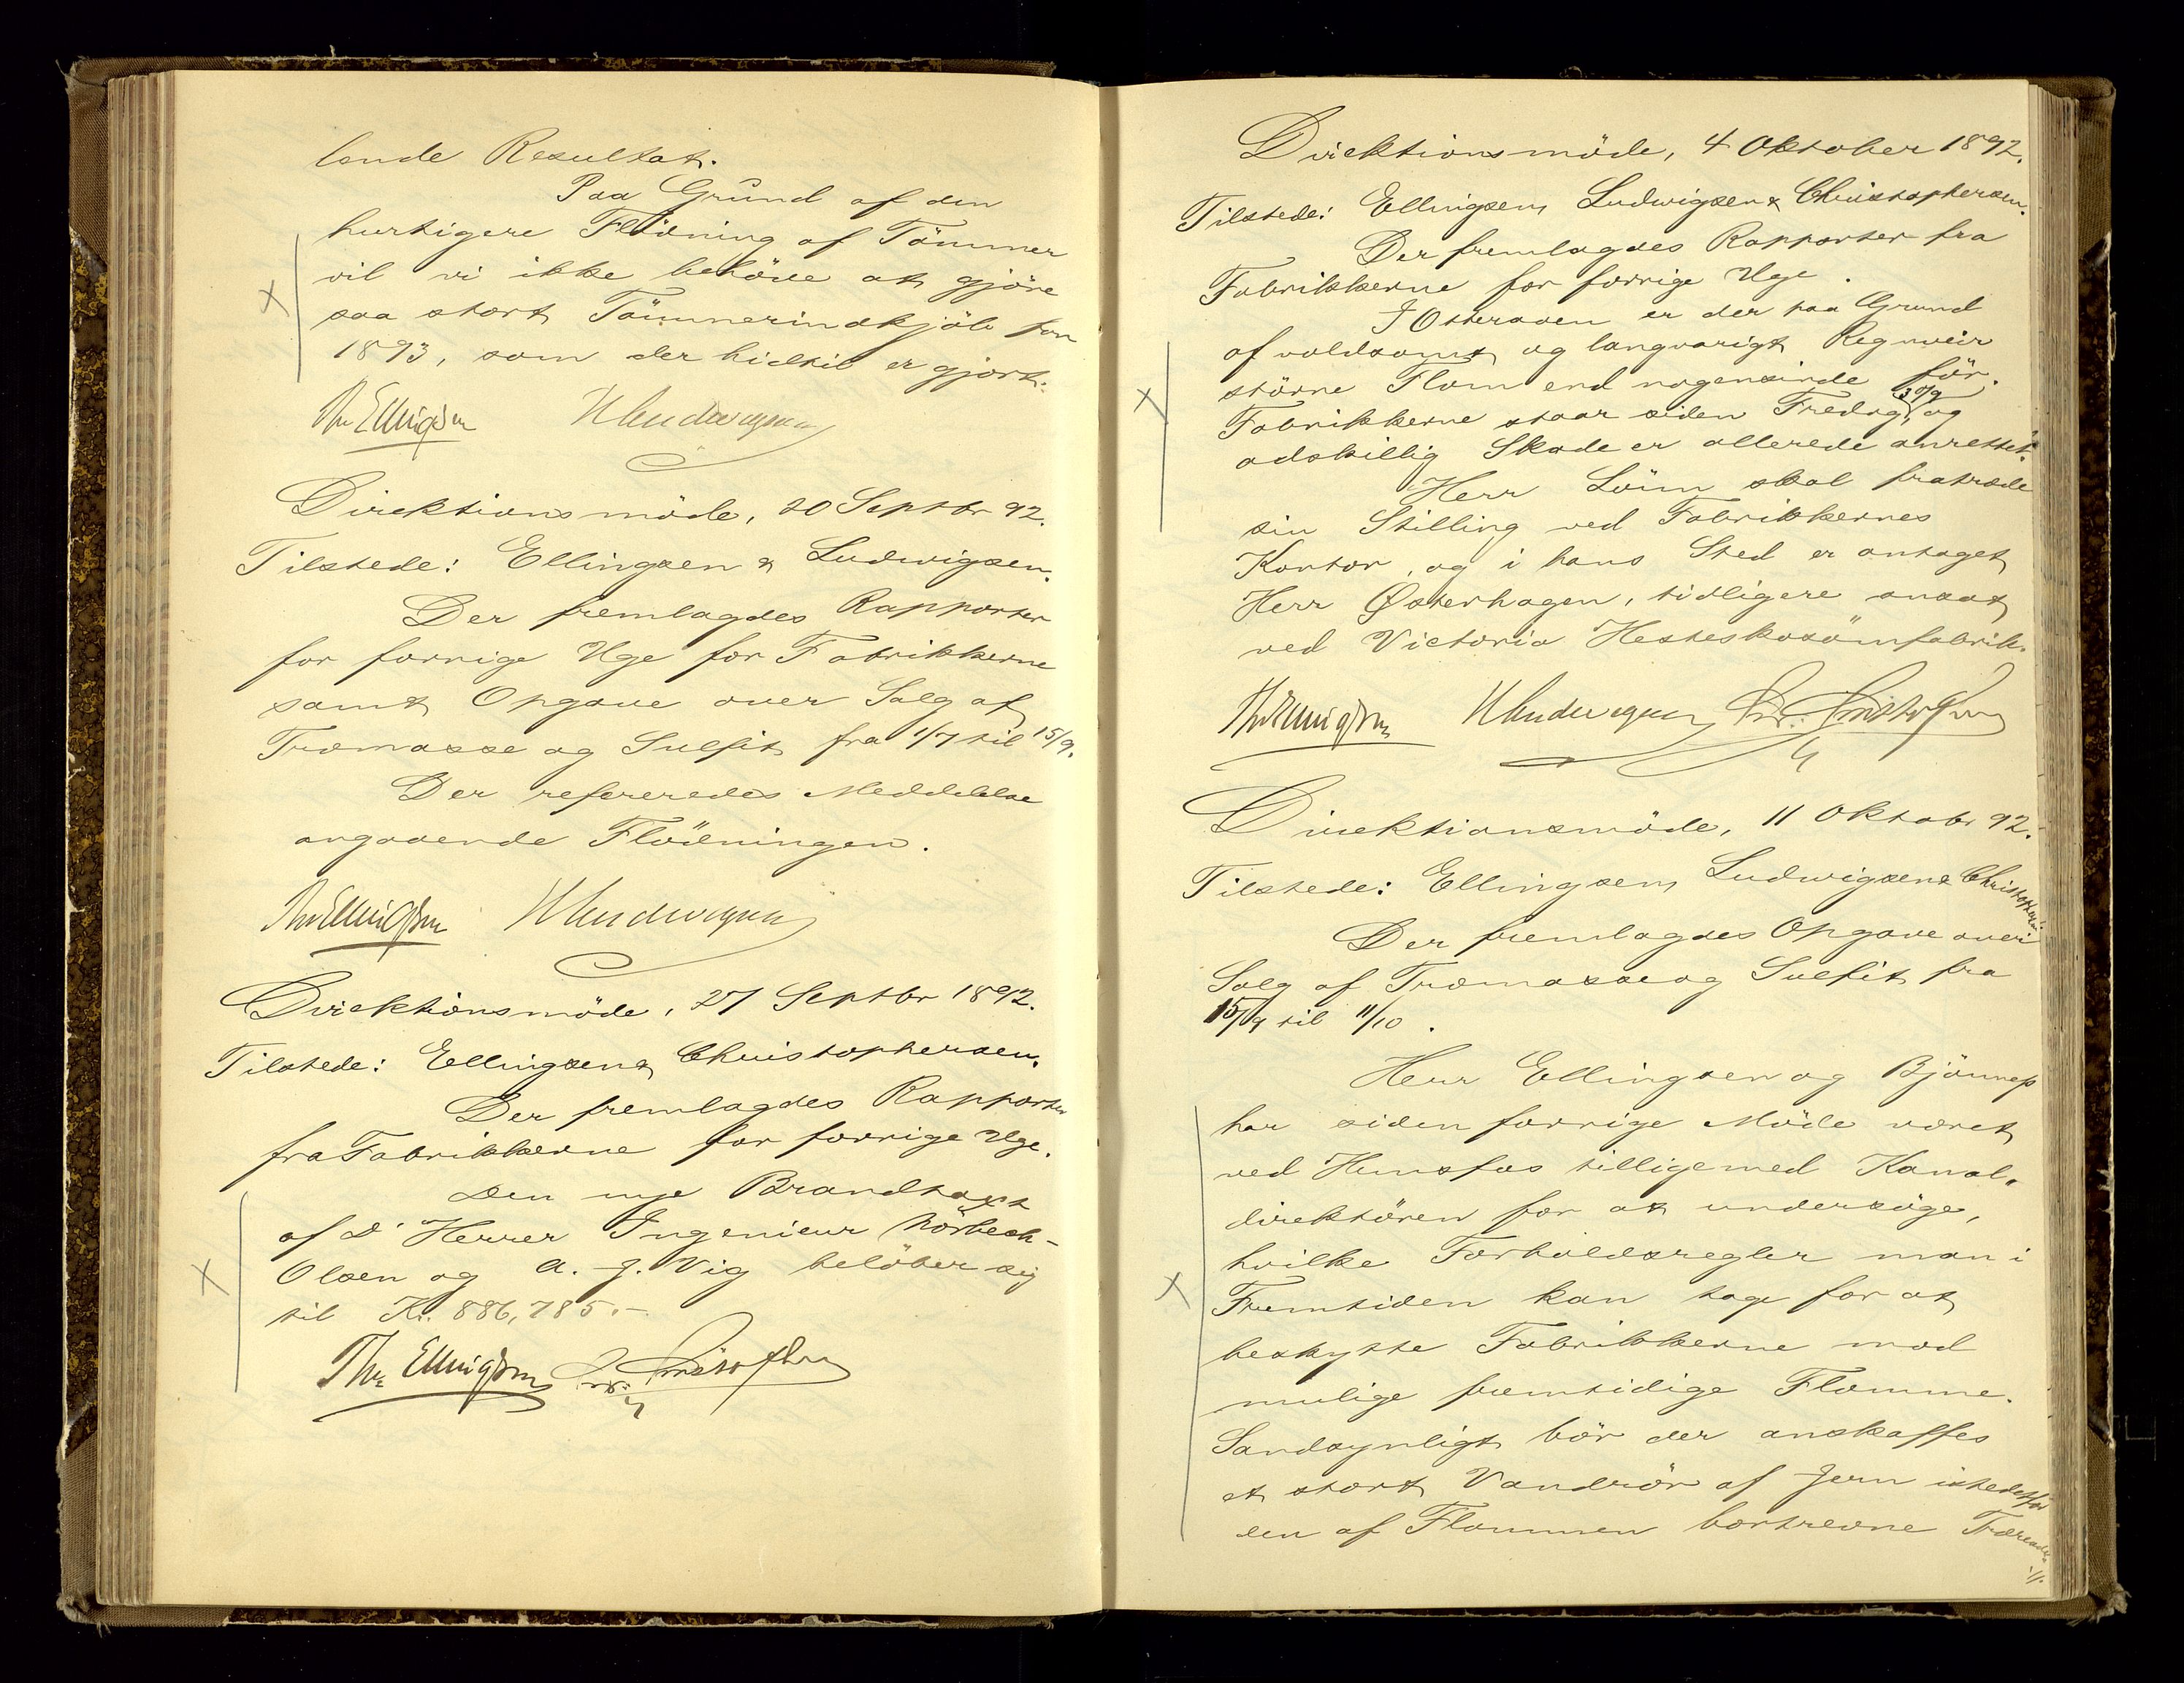 lende Resultat.
Paa Grund af den
hurtigere Flödning af Tömmer
vil vi ikke behöve at gjöre
saa stort Tömmerindkjöb for
1893, som der hidtil er gjort.
Th. Ellingsen HLudwigsen
Direktionsmöde, 20 Septbr 92.
Tilstede: Ellingsen & Ludwigsen.
Der fremlagdes Rapporter
for forrige Uge for Fabrikkerne
samt Opgave over Salg af
Træmasse og Sulfit fra 1/7 til 15/9.
Der refereredes Meddelelse
angaaende Flödningen.
Th. Ellingsen HLudwigsen
Direktionsmöde, 27 Septbr 1892.
Tilstede: Ellingsen & Christophersen.
Der fremlagdes Rapporter
fra Fabrikkerne for forrige Uge.
Den nye Brandtaxt
af D' Herrer Ingenieur Nörbech-
Olsen og A. J. Vig belöber sig
til Kr. 886,785.-
Th. Ellingsen Chr. Christophersen
Direktionsmöde, 4 Oktober 1892.
Tilstede: Ellingsen, Ludwigsen & Christophersen.
Der fremlagdes Rapporter fra
Fabrikkerne for forrige Uge.
I Otteraaen er der paa Grund
af voldsomt og langvarigt Regnveir
större Flom end nogensinde för.
Fabrikkerne staar siden Fredag 30/9 og
adskillig Skade er allerede anrettet.
Herr Löim skal fratræde
sin Stilling ved Fabrikkernes
Kontor, og i hans Sted er antaget
Herr Østerhagen, tidligere ansat
ved Victoria Hesteskosömfabrik.
Th. Ellingsen HLudwigsen Chr. Christophersen
Direktionsmöde, 11 Oktobr 92.
Tilstede: Ellingsen, Ludwigsen & Christophersen
Der fremlagdes Opgave over
Salg af Træmasse og Sulfit fra
15/9 til 11/10.
Herr Ellingsen og Bjönness
har siden forrige Möde været
ved Hunsfos tilligemed Kanal-
direktören for at undersöge,
hvilke Forholdsregler man i
Fremtiden kan tage for at
beskytte Fabrikkerne mod
mulige fremtidige Flomme.
Sandsynligt bör der anskaffes
et stort Vandrör af Jern istedetfor
den af Flommen bortrevne